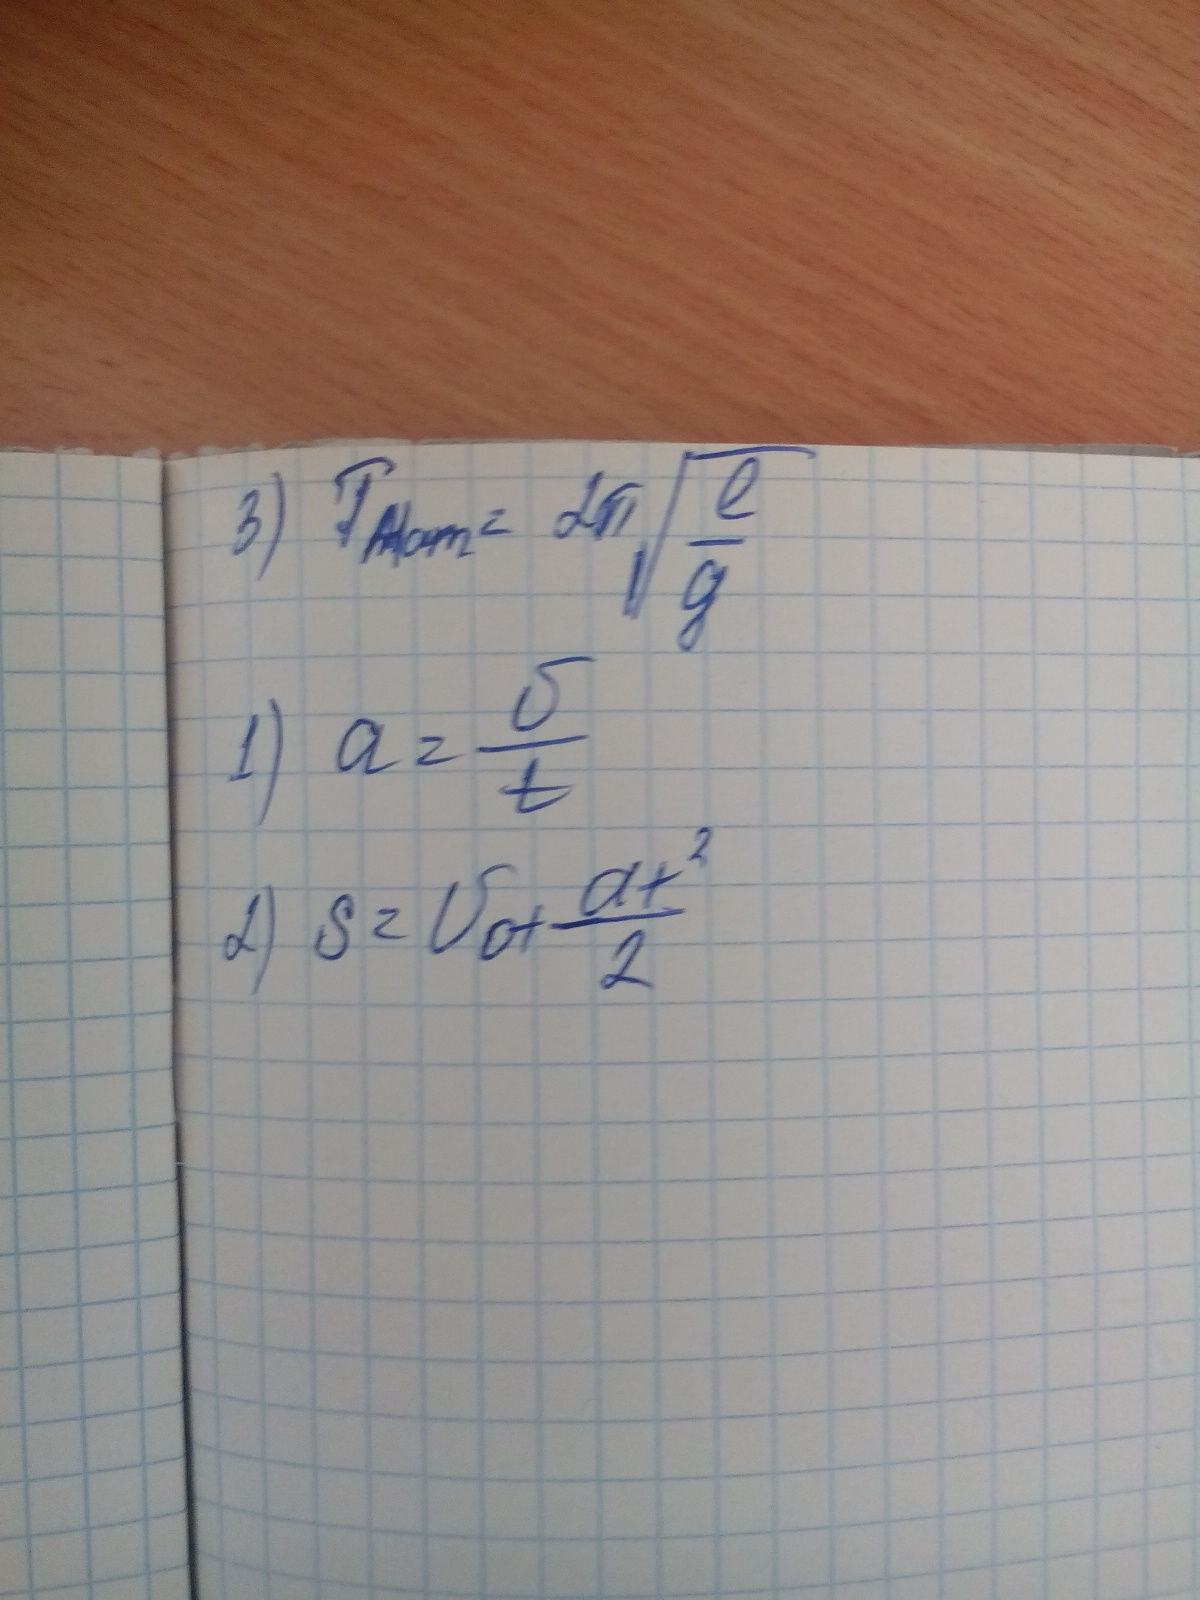 3) Tмат = 2π√(l/g)
1) a = υ/t
2) s = υ₀+ at²/2